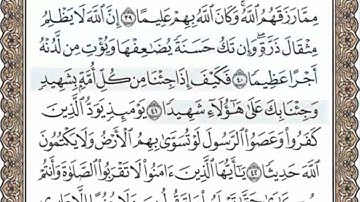 مِمَّا رَزَقَهُمُ ٱللَّهُۚ وَكَانَ ٱللَّهُ بِهِمۡ عَلِيمًا ٣٩ إِنَّ ٱللَّهَ لَا يَظۡلِمُ
مِثۡقَالَ ذَرَّةٖۖ وَإِن تَكُ حَسَنَةٗ يُضَٰعِفۡهَا وَيُؤۡتِ مِن لَّدُنۡهُ
أَجۡرًا عَظِيمٗا ٤٠ فَكَيۡفَ إِذَا جِئۡنَا مِن كُلِّ أُمَّةِۭ بِشَهِيدٖ
وَجِئۡنَا بِكَ عَلَىٰ هَٰٓؤُلَآءِ شَهِيدٗا ٤١ يَوۡمَئِذٖ يَوَدُّ ٱلَّذِينَ
كَفَرُواْ وَعَصَوُاْ ٱلرَّسُولَ لَوۡ تُسَوَّىٰ بِهِمُ ٱلۡأَرۡضُ وَلَا يَكۡتُمُونَ
ٱللَّهَ حَدِيثٗا ٤٢ يَٰٓأَيُّهَا ٱلَّذِينَ ءَامَنُواْ لَا تَقۡرَبُواْ ٱلصَّلَوٰةَ وَأَنتُمۡ